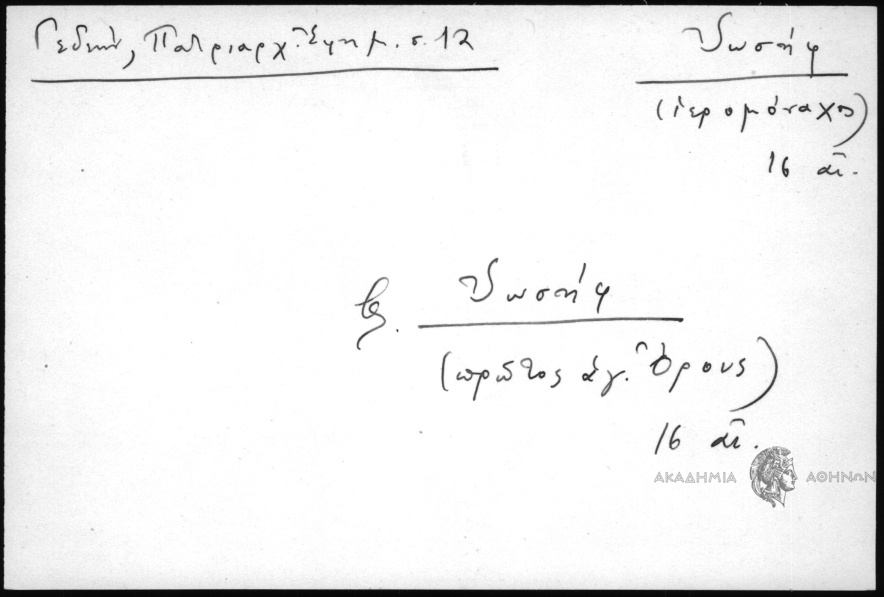 Γεδεών, Πατριαρχ. Ἐφημ. σ. 12
Ἰωσήφ
(ἱερομόναχος)
16 αἰ.
βλ. Ἰωσήφ
(πρῶτος ἁγ. Ὄρους)
16 αἰ.
ΑΚΑΔΗΜΙΑ ΑΘΗΝΩΝ